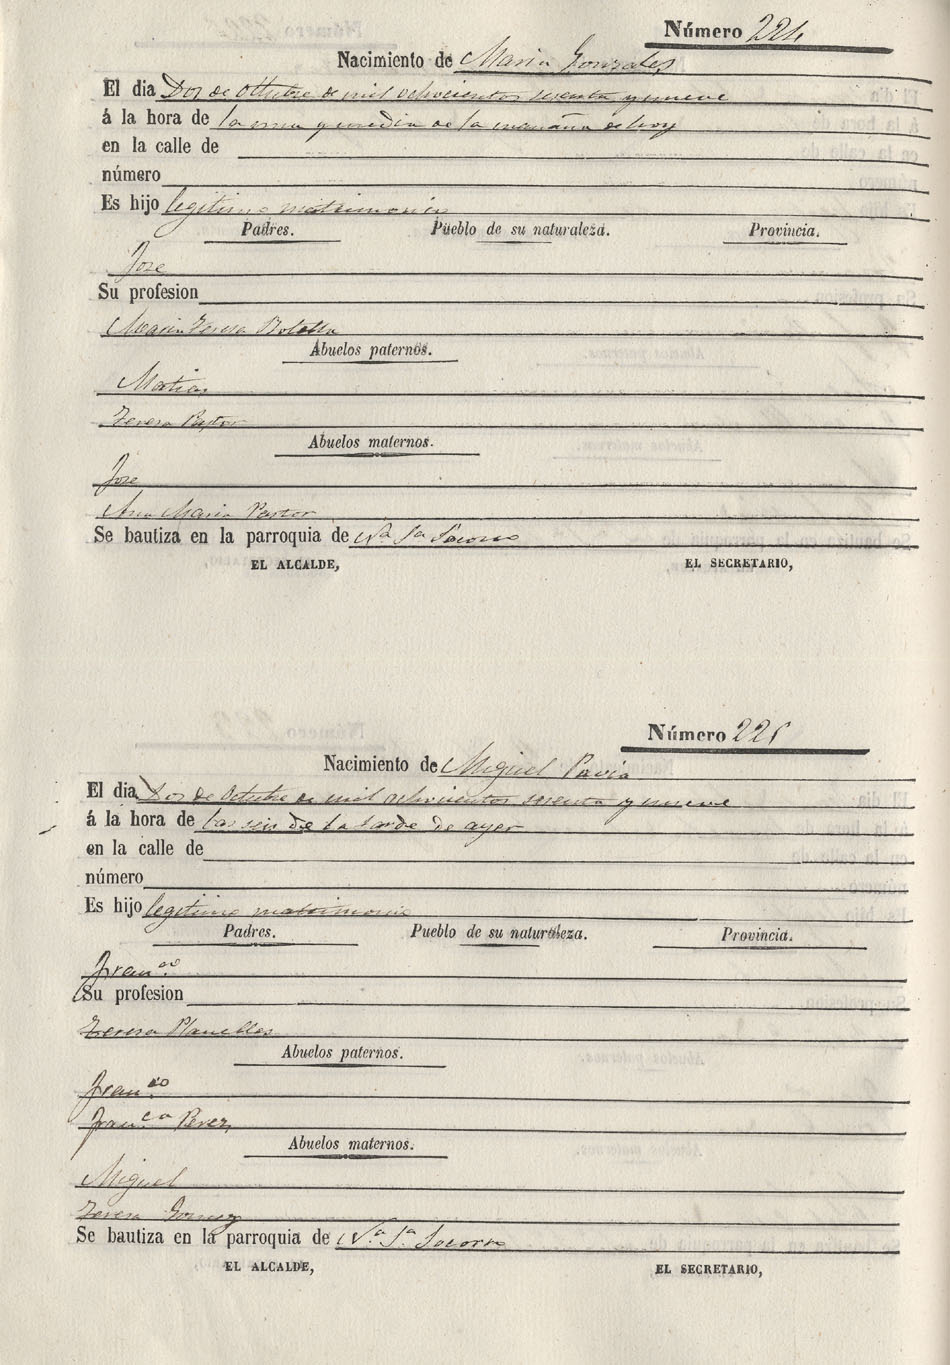 Número 224
Nacimiento de Maria Gonzales
El dia Dos de Octubre de mil ochocientos sesenta y nueve
á la hora de la una y media de la mañana de hoy
en la calle de
número
Es hijo legitimo matrimonio
Padres. Pueblo de su naturaleza. Provincia.
Jose
Su profesion
Maria Teresa Botella
Abuelos paternos.
Matias
Teresa Pastor
Abuelos maternos.
Jose
Ana Maria Pastor
Se bautiza en la parroquia de Na. Sa. Socorro
EL ALCALDE, EL SECRETARIO,
Número 225
Nacimiento de Miguel Pavia
El dia Dos de Octubre de mil ochocientos sesenta y nueve
á la hora de las seis de la tarde de ayer
en la calle de
número
Es hijo legitimo matrimonio
Padres. Pueblo de su naturaleza. Provincia.
Fran.co
Su profesion
Teresa Planelles
Abuelos paternos.
Fran.co
Fran.ca Perez
Abuelos maternos.
Miguel
Teresa Gomez
Se bautiza en la parroquia de Na. Sa. Socorro
EL ALCALDE, EL SECRETARIO,